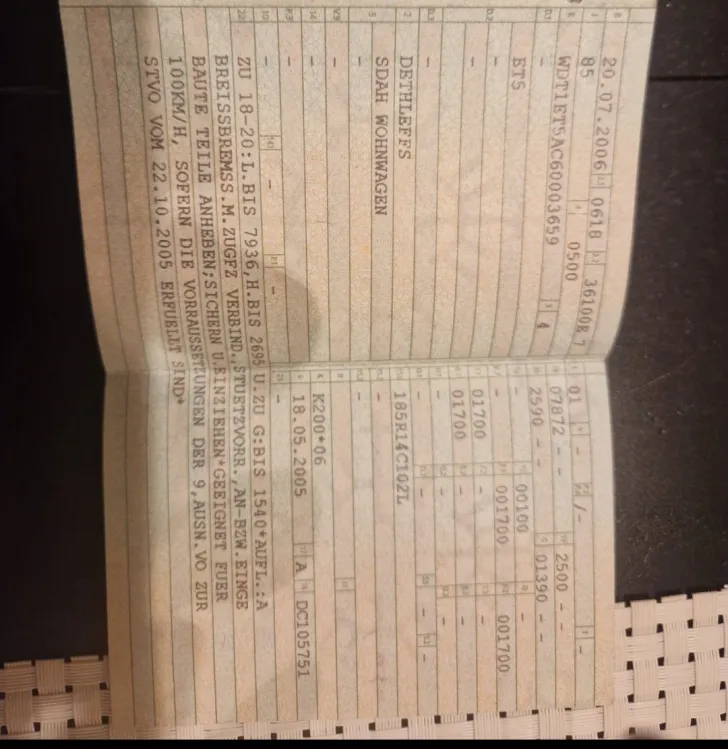 B 20.07.2006 2.1 0618 2.2 36100E 7
J 85 4 0500
E WDT1ET5AC60003659 3 4
D.1 -
ET5
D.2 -
-
D.3 -
2 DETHLEFFS
5 SDAH WOHNWAGEN
V.9 -
14 -
P.3 -
10 - 14.1 - P.1 -
22 ZU 18-20:L.BIS 7936,H.BIS 2695 U.ZU G:BIS 1540*AUFL.:A
BREISSBREMSS.M.ZUGFZ VERBIND.,STUETZVORR.,AN-BZW.EINGE
BAUTE TEILE ANHEBEN;SICHERN U.EINZIEHEN*GEEIGNET FUER
100KM/H, SOFERN DIE VORRAUSSETZUNGEN DER 9.AUSN.VO ZUR
STVO VOM 22.10.2005 ERFUELLT SIND*
L 01 9 - /- -
18 07872 - - 19 2500 - -
20 2590 - - G 01390 - -
- 13 00100 Q -
- 001700 001700
01700 - -
01700 - -
- - -
- - - -
185R14C102L
-
-
R - 11
K K200*06
6 18.05.2005 17 A 16 DC105751
21 -